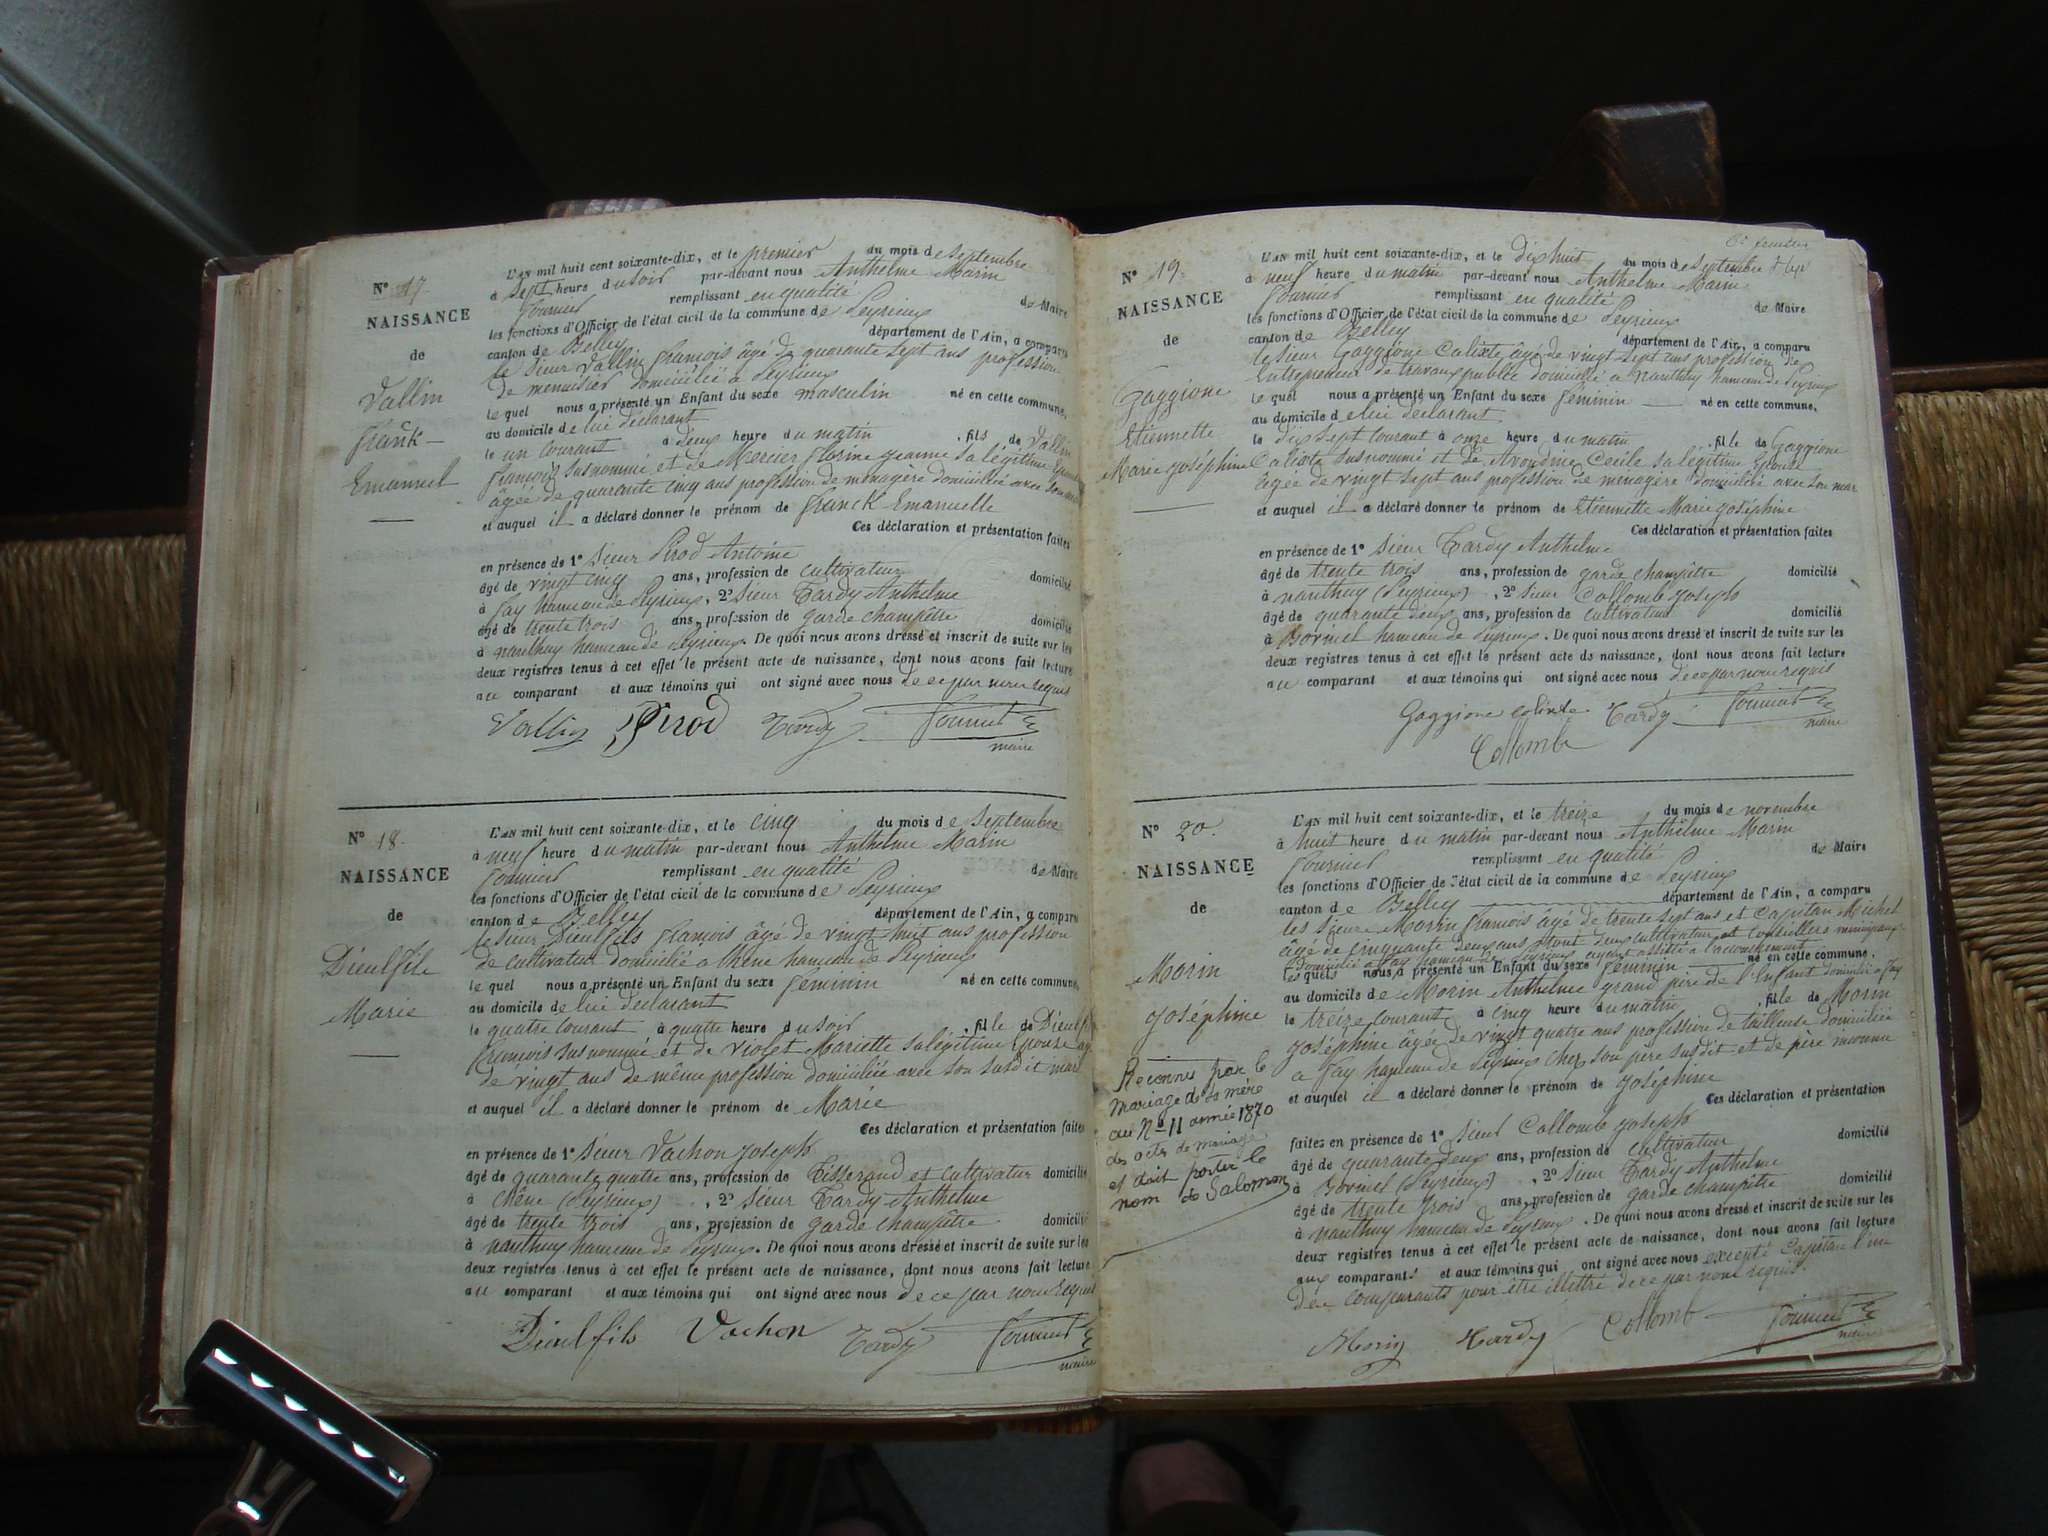 N° 17
NAISSANCE
de
Vallin
Franck
Emanuel
L'AN mil huit cent soixante-dix, et le premier du mois de Septembre
à Sept heure du soir par-devant nous Anthelme Marin
Fournier remplissant en qualité de Maire
les fonctions d'Officier de l'état civil de la commune de Peyrieux
canton de Belley département de l'Ain, a comparu
le Sieur Vallin François âgé de quarante sept ans profession
de menuisier domicilié à Peyrieux
le quel nous a présenté un Enfant du sexe masculin né en cette commune,
au domicile de lui déclarant
le un courant à deux heure du matin, fils de Vallin
François susnommé et de Mercier Florine Jeanne sa légitime
âgée de quarante cinq ans profession de menagère domiciliée avec son
et auquel il a déclaré donner le prénom de Franck Emanuelle
Ces déclaration et présentation faites
en présence de 1° Sieur Pirod Antoine
âgé de vingt cinq ans, profession de cultivateur domicilié
à Fay hameau de Peyrieux, 2° Sieur Tardy Anthelme
âgé de trente trois ans, profession de garde champêtre domicilié
à nanthuy hameau de Peyrieux. De quoi nous avons dressé et inscrit de suite sur les
deux registres tenus à cet effet le présent acte de naissance, dont nous avons fait lecture
au comparant et aux témoins qui ont signé avec nous de ce par nous requis
Vallin Pirod Tardy Fournier
maire
N° 18
NAISSANCE
de
Dieulfils
Marie
L'AN mil huit cent soixante-dix, et le cinq du mois de Septembre
à neuf heure du matin par-devant nous Anthelme Marin
Fournier remplissant en qualité de Maire
les fonctions d'Officier de l'état civil de la commune de Peyrieux
canton de Belley département de l'Ain, a comparu
le sieur Dieulfils François âgé de vingt huit ans profession
de cultivateur domicilié à Chêne hameau de Peyrieux
le quel nous a présenté un Enfant du sexe feminin né en cette commune
au domicile de lui déclarant
le quatre courant à quatre heure du soir, fille de Dieulfi
François susnommé et de Violet Mariette sa légitime Epouse
de vingt ans de même profession domiciliée avec son susdit mari
et auquel il a déclaré donner le prénom de Marie
Ces déclaration et présentation faites
en présence de 1° Sieur Vachon Joseph
âgé de quarante quatre ans, profession de Tisserand et cultivateur domicilié
à Chêne (Peyrieux), 2° Sieur Tardy Anthelme
âgé de trente trois ans, profession de garde champêtre domicilié
à nanthuy hameau de Peyrieux. De quoi nous avons dressé et inscrit de suite sur les
deux registres tenus à cet effet le présent acte de naissance, dont nous avons fait lecture
au comparant et aux témoins qui ont signé avec nous de ce par nous requis
Dieulfils Vachon Tardy Fournier
maire
N° 19
NAISSANCE
de
Gaggione
Etiennette
Marie Joséphine
L'AN mil huit cent soixante-dix, et le dix huit du mois de Septembre
à neuf heure du matin par-devant nous Anthelme Marin
Fournier remplissant en qualité de Maire
les fonctions d'Officier de l'état civil de la commune de Peyrieux
canton de Belley département de l'Ain, a comparu
le sieur Gaggione Calixte âgé de vingt sept ans profession de
Entrepreneur de travaux public domicilié à nanthuy hameau de Peyrieux
le quel nous a présenté un Enfant du sexe feminin né en cette commune,
au domicile de lui déclarant
le dix sept courant à onze heure du matin, fille de Gaggione
Calixte susnommé et de Cecile sa légitime Epouse
âgée de vingt sept ans profession de menagère domiciliée avec son mari
et auquel il a déclaré donner le prénom de Etiennette Marie Joséphine
Ces déclaration et présentation faites
en présence de 1° Sieur Tardy Anthelme
âgé de trente trois ans, profession de garde champêtre domicilié
à nanthuy (Peyrieux), 2° Sieur Collomb Joseph
âgé de quarante deux ans, profession de cultivateur domicilié
à hameau de Peyrieux. De quoi nous avons dressé et inscrit de suite sur les
deux registres tenus à cet effet le présent acte de naissance, dont nous avons fait lecture
au comparant et aux témoins qui ont signé avec nous de ce par nous requis
Gaggione Calixte Tardy Fournier
maire
Collomb
N° 20.
NAISSANCE
de
Morin
Joséphine
Reconnu par le
mariage de sa mère
au N° 11 année 1870
des actes de mariage
et doit porter le
nom de Salomon
L'AN mil huit cent soixante-dix, et le treize du mois de novembre
à huit heure du matin par-devant nous Anthelme Marin
Fournier remplissant en qualité de Maire
les fonctions d'Officier de l'état civil de la commune de Peyrieux
canton de Belley département de l'Ain, a comparu
les sieurs Morin François âgé de trente sept ans et Capitan Michel
âgé de cinquante deux ans tout deux cultivateur et Conseillers municipaux
domicilié à Fay hameau de Peyrieux ayant assisté à l'accouchement
les quels nous a présenté un Enfant du sexe feminin né en cette commune,
au domicile de Morin Anthelme grand père de l'Enfant domicilié à Fay
le treize courant à cinq heure du matin, fille de Morin
Joséphine âgée de vingt quatre ans profession de tailleuse domiciliée
à Fay hameau de Peyrieux chez son père susdit et de père inconnu
et auquel il a déclaré donner le prénom de Joséphine
Ces déclaration et présentation
faites en présence de 1° Sieur Collomb Joseph
âgé de quarante deux ans, profession de cultivateur domicilié
à (Peyrieux), 2° Sieur Tardy Anthelme
âgé de trente trois ans, profession de garde champêtre domicilié
à nanthuy hameau de Peyrieux. De quoi nous avons dressé et inscrit de suite sur les
deux registres tenus à cet effet le présent acte de naissance, dont nous avons fait lecture
aux comparants et aux témoins qui ont signé avec nous excepté Capitan l'un
des comparants pour être illettré de ce par nous requis.
Morin Tardy Collomb Fournier
maire